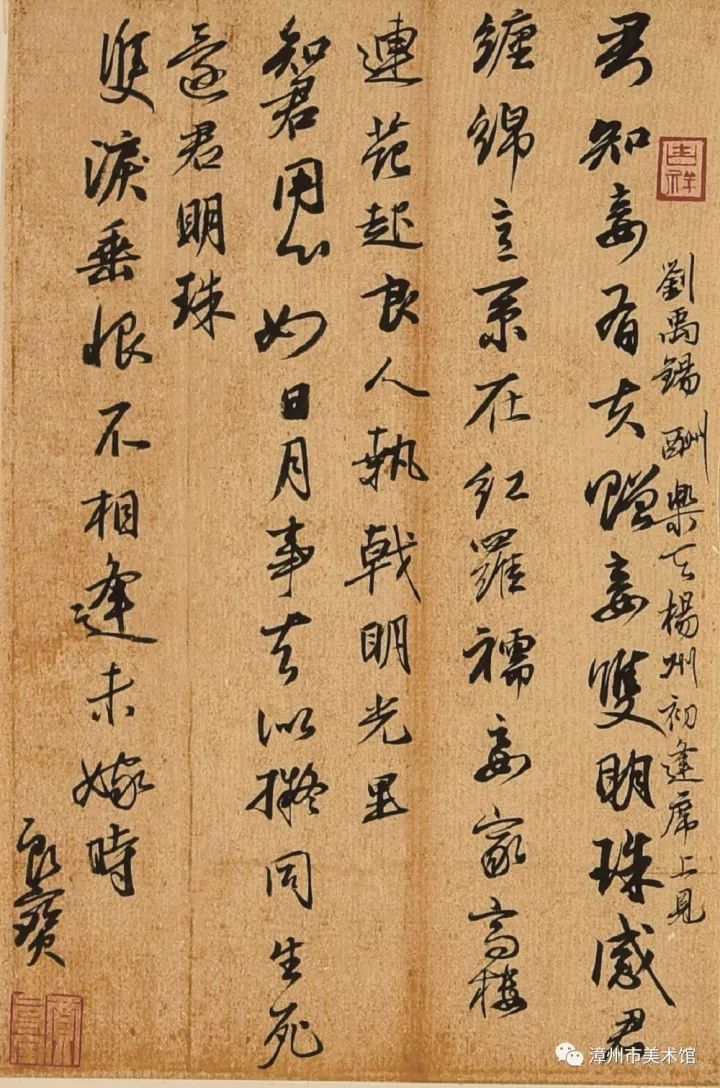 吉祥
劉禹錫 酬樂天楊州初逢席上見
君知妾有夫贈妾雙明珠感君
纏綿意系在红羅襦妾家高樓
連苑起良人執戟明光里
知君用心如日月事夫似擬同生死
還君明珠
雙淚垂恨不相逢未嫁時
良寶
漳州市美术馆